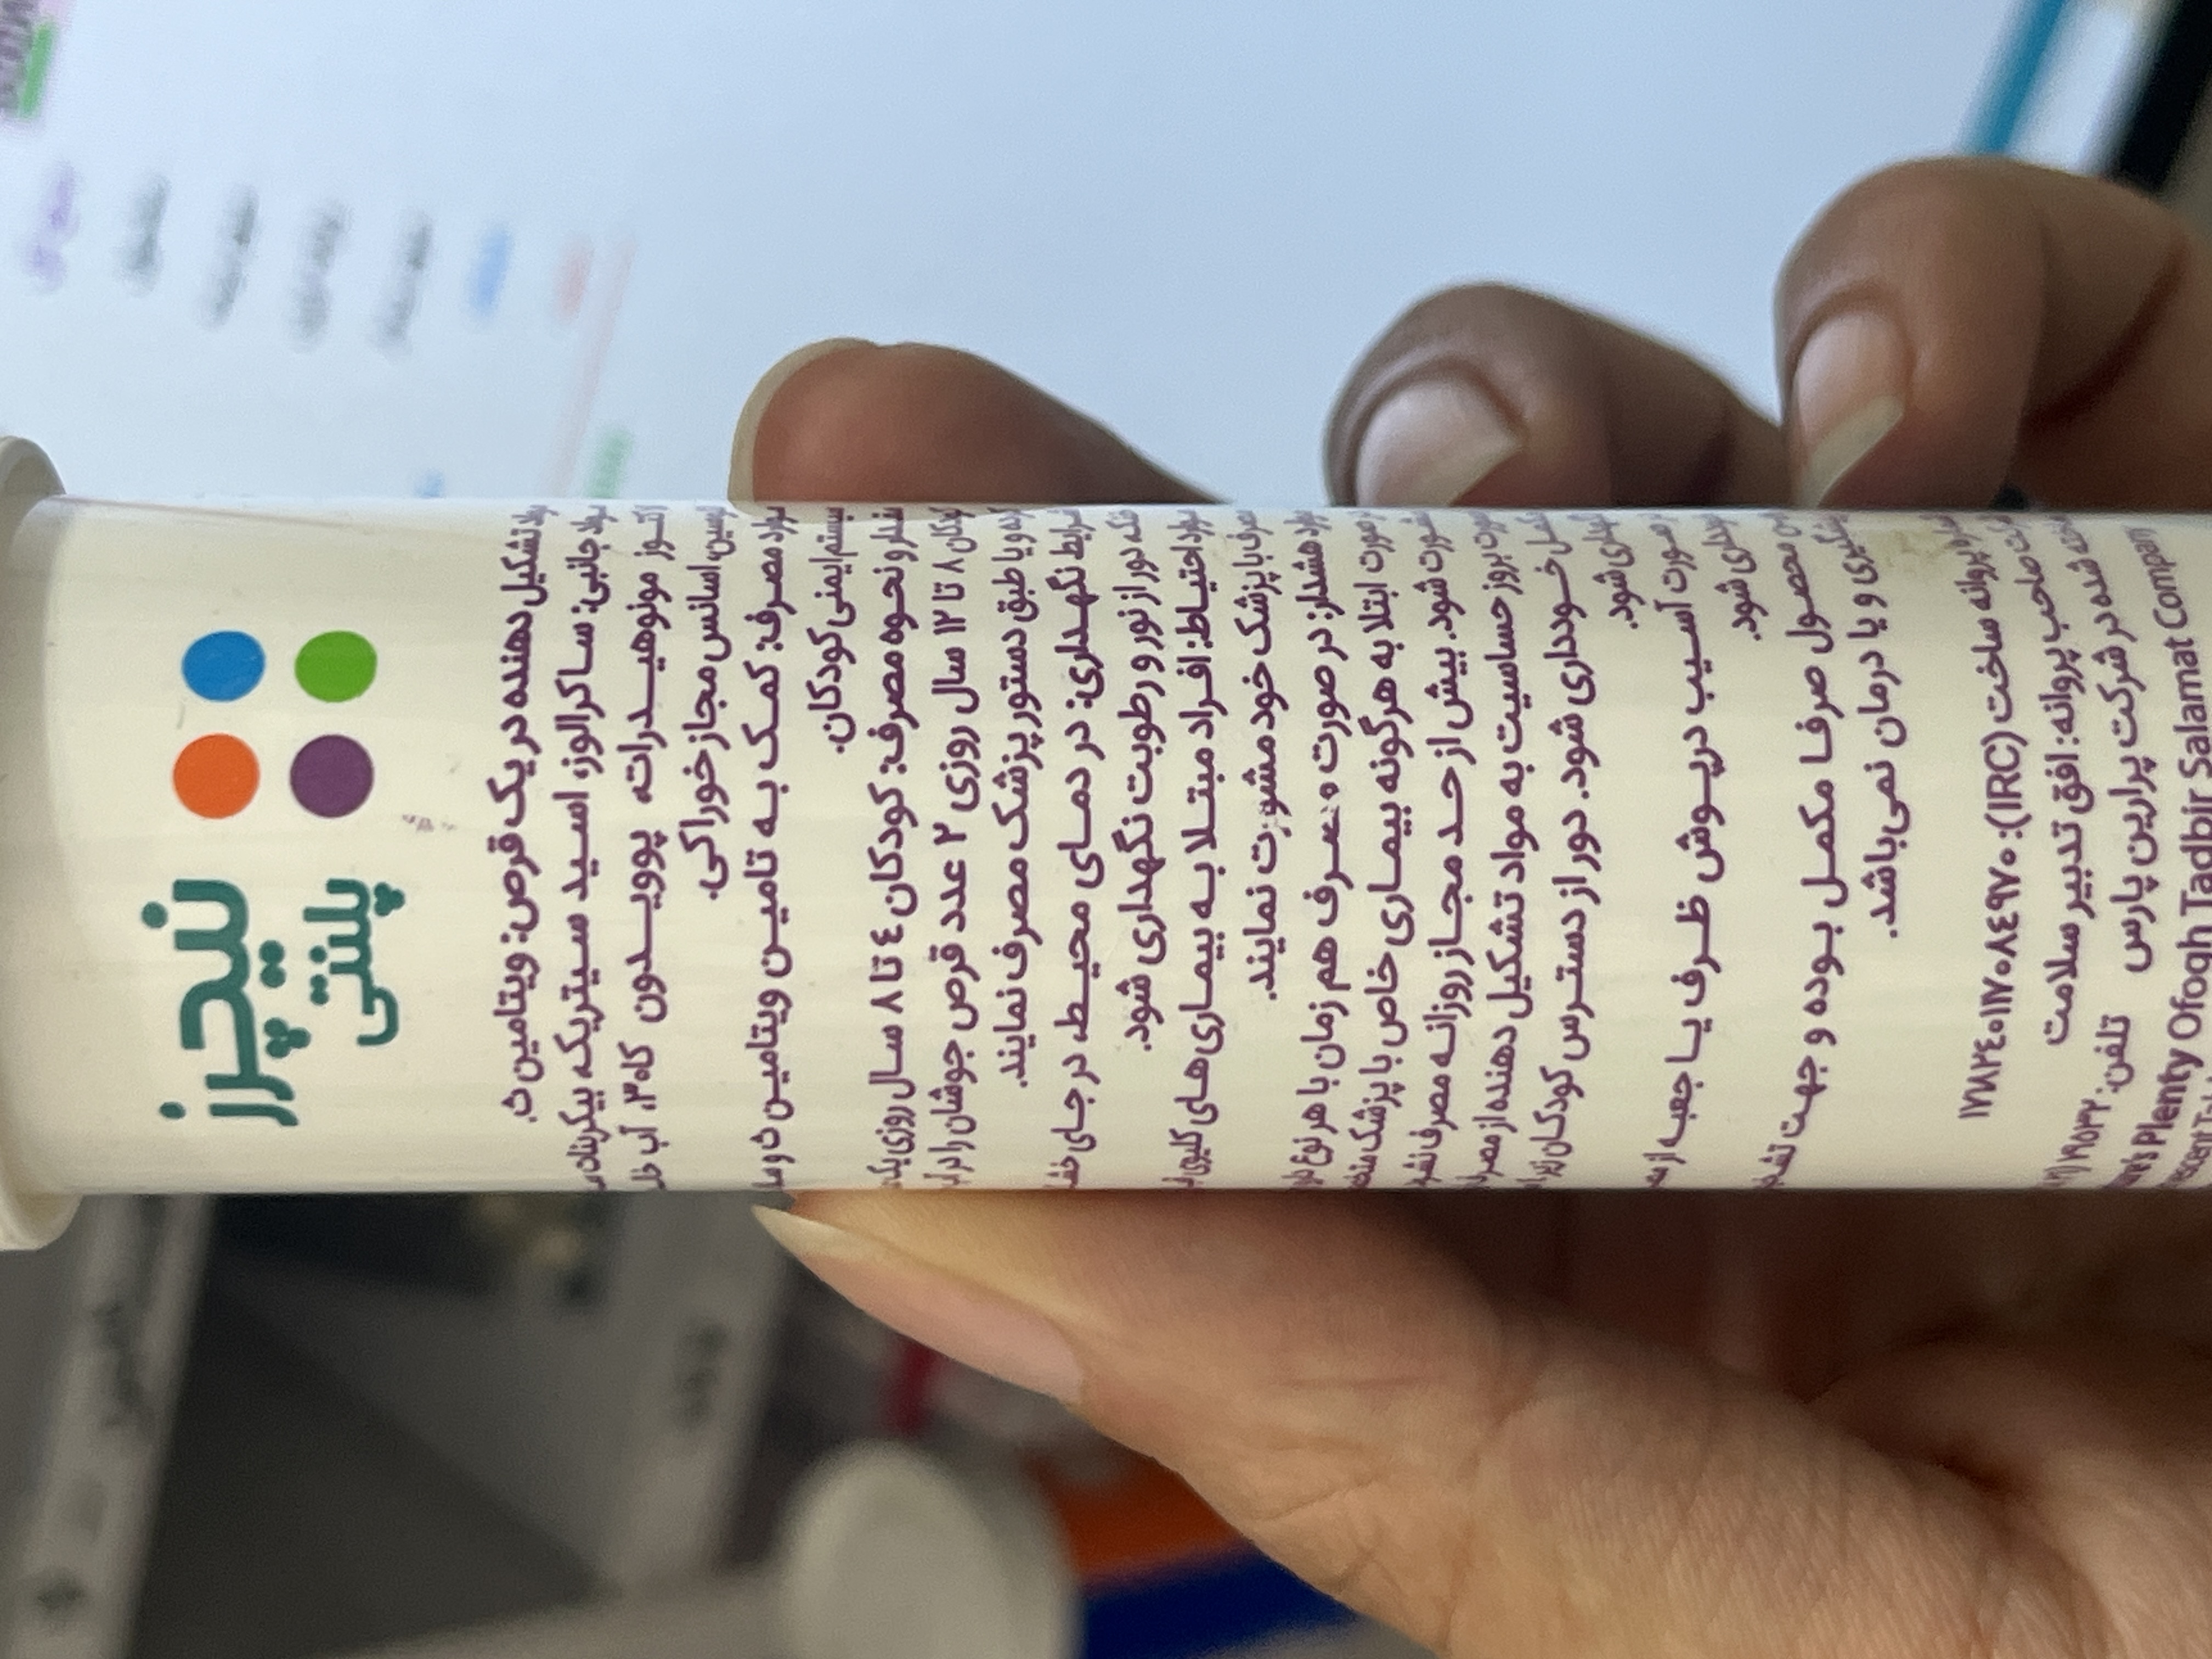 نیچرز
پلنتی
مواد تشکیل دهنده در یک قرص: ویتامین ث.
مواد جانبی: ساکرالوز، اسید سیتریک، بیکربنات
لاکتوز مونوهیدرات، پوویدون کا۳۰، آب
اسانس مجاز خوراکی.
موارد مصرف: کمک به تامین ویتامین ث و
سیستم ایمنی کودکان.
مقدار و نحوه مصرف: کودکان ٤ تا ۸ سال روزی یک
کودکان ۸ تا ۱۲ سال روزی ۲ عدد قرص جوشان را در
و یا طبق دستور پزشک مصرف نمایند.
شرایط نگهداری: در دمای محیط، در جای
خشک، دور از نور و رطوبت نگهداری شود.
موارد احتیاط: افراد مبتلا به بیماری‌های کلیوی
با پزشک خود مشورت نمایند.
موارد هشدار: در صورت مصرف هم زمان با هر نوع
صورت ابتلا به هرگونه بیماری خاص با پزشک
مشورت شود. بیش از حد مجاز روزانه مصرف
بروز حساسیت به مواد تشکیل دهنده از
خودداری شود. دور از دسترس کودکان
نگهداری شود.
صورت آسیب درپوش ظرف یا جعبه از
خودداری شود.
محصول صرفا مکمل بوده و جهت
پیشگیری و یا درمان نمی‌باشد.
پروانه ساخت (IRC):
صاحب پروانه: افق تدبیر سلامت
شده در شرکت پرارین پارس تلفن:
Plenty Ofogh Tadbir Salamat Company